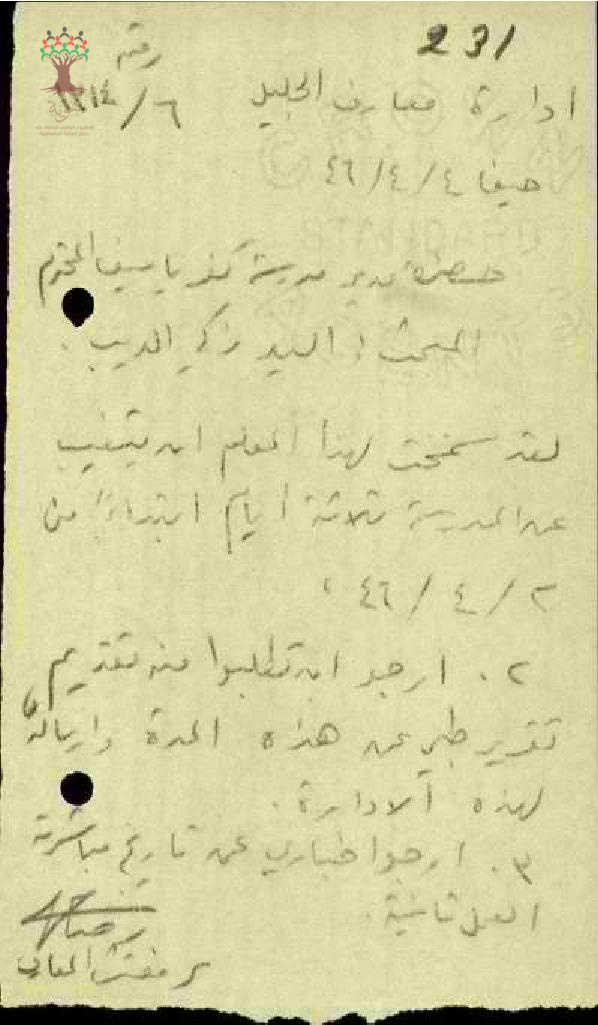 231
ادارة معارف الجليل رقم
٦/١٢١٤
حيفا ٤/٤/٤٦
حضرة مدير مدرسة كفر ياسيف المحترم
المبحث: السيد زكي الديب.
لقد سمحت لهذا المعلم ان يتغيب
عن المدرسة ثلاثة ايام ابتداءً من
٢/٤/٤٦،
٢. ارجو ان تطلبوا منه تقديم
تقرير طبي عن هذه المدة وارساله
لهذه الادارة.
٣. ارجو اخباري عن تاريخ مباشرته
العمل ثانية.
مفتش المعارف